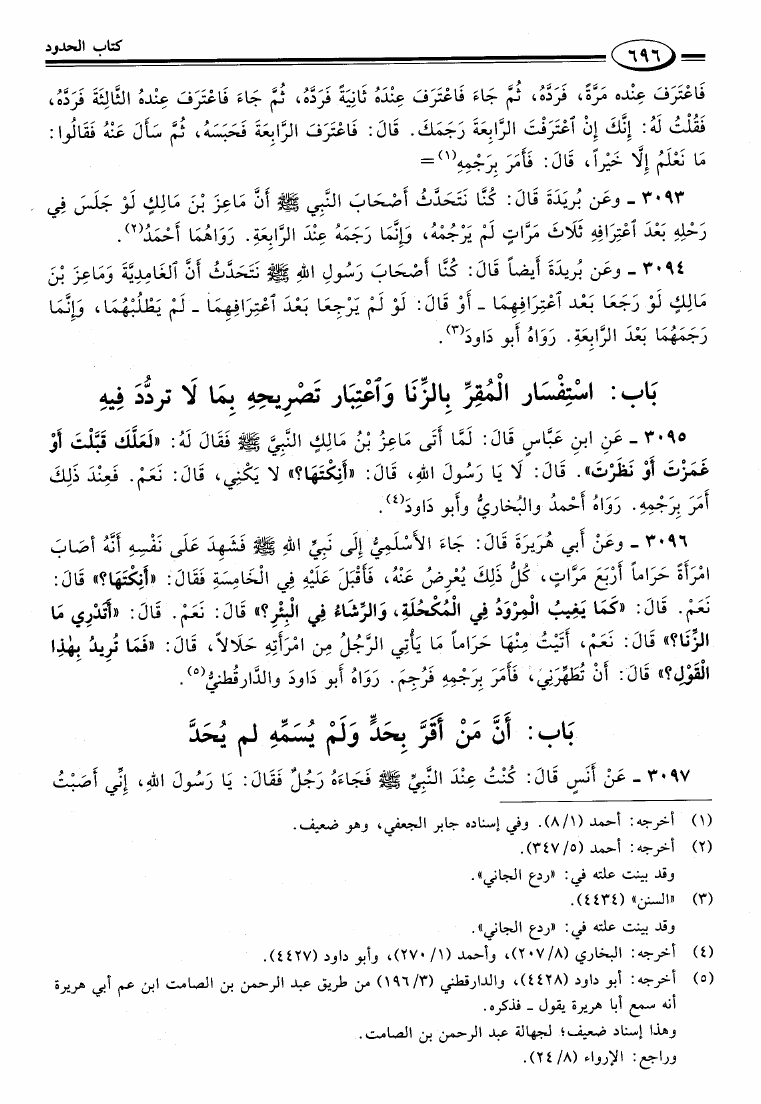 ٦٩٦
كتاب الحدود
فَاعْتَرَفَ عِنْده مَرَّةً، فَرَدَّهُ، ثُمَّ جَاءَ فَاعْتَرَفَ عِنْدَهُ ثَانِيَةً فَرَدَّهُ، ثُمَّ جَاءَ فَاعْتَرَفَ عِنْدهُ الثَّالِثَةَ فَرَدَّهُ،
فَقُلْتُ لَهُ: إِنَّكَ إِنْ ٱعْتَرَفْتَ الرَّابِعَةَ رَجَمَكَ. قَالَ: فَاعْتَرَفَ الرَّابِعَةَ فَحَبَسَهُ، ثُمَّ سَأَلَ عَنْهُ فَقَالُوا:
مَا نَعْلَمُ إِلَّا خَيْراً، قَالَ: فَأَمَرَ بِرَجْمِهِ(١)=
٣٠٩٣ ـ وعَن بُرَيدَةَ قَالَ: كُنَّا نَتَحَدَّثُ أَصْحَابَ النَّبِي ﷺ أَنَّ مَاعِزَ بْنَ مَالِكٍ لَوْ جَلَسَ فِي
رَحْلِهِ بَعْدَ ٱعْتِرَافِهِ ثَلَاثَ مَرَّاتٍ لَمْ يَرْجُمْهُ، وَإِنَّمَا رَجَمَهُ عِنْدَ الرَّابِعَةِ. رَوَاهُمَا أَحْمَدُ(٢).
٣٠٩٤ ـ وعَن بُرَيدَةَ أَيضاً قَالَ: كُنَّا أَصْحَابَ رَسُولِ اللهِ ﷺ نَتَحَدَّثُ أَنَّ ٱلغَامِدِيَّةَ وَمَاعِزَ بْنَ
مَالِكٍ لَوْ رَجَعَا بَعْدَ ٱعْتِرَافِهِمَا ـ أَوْ قَالَ: لَوْ لَمْ يَرْجِعَا بَعْدَ ٱعْتِرَافِهِمَا ـ لَمْ يَطْلُبْهُمَا، وَإِنَّمَا
رَجَمَهُمَا بَعْدَ الرَّابِعَةِ. رَوَاهُ أَبو دَاودَ(٣).
بَاب: اسْتِفْسَار الْمُقِرِّ بِالزِّنَا وَٱعْتِبَار تَصْرِيحِهِ بِمَا لَا تردُّدَ فِيهِ
٣٠٩٥ ـ عَنِ ابنِ عَبَّاسٍ قَالَ: لَمَّا أَتَى مَاعِزُ بْنُ مَالِكٍ النَّبِيَّ ﷺ فَقَالَ لَهُ: «لَعَلَّكَ قَبَّلْتَ أَوْ
غَمَزْتَ أَوْ نَظَرْتَ». قَالَ: لَا يَا رَسُولَ اللهِ، قَالَ: «أَنِكْتَهَا؟» لا يَكْنِي، قَالَ: نَعَمْ. فَعِنْدَ ذَلِكَ
أَمَرَ بِرَجْمِهِ. رَوَاهُ أَحْمدُ والبُخاريُّ وأَبو دَاودَ(٤).
٣٠٩٦ ـ وعَنْ أَبي هُرَيرَةَ قَالَ: جَاءَ الأَسْلَمِيُّ إِلَى نَبِيِّ اللهِ ﷺ فَشَهِدَ عَلَى نَفْسِهِ أَنَّهُ أَصَابَ
امْرَأَةً حَرَاماً أَرْبَعَ مَرَّاتٍ، كُلُّ ذَلِكَ يُعْرِضُ عَنْهُ، فَأَقْبَلَ عَلَيْهِ فِي الْخَامِسَةِ فَقَالَ: «أَنِكْتَهَا؟» قَالَ:
نَعَمْ. قَالَ: «كَمَا يَغِيبُ المِرْوَدُ فِي الْمُكْحُلَةِ، وَالرِّشَاءُ فِي الْبِئْرِ؟» قَالَ: نَعَمْ. قَالَ: «أَتَدْرِي مَا
الزِّنَا؟» قَالَ: نَعَمْ، أَتَيْتُ مِنْهَا حَرَاماً مَا يَأْتِي الرَّجُلُ مِنِ امْرَأَتِهِ حَلَالاً، قَالَ: «فَمَا تُرِيدُ بِهٰذا
الْقَوْلِ؟» قَالَ: أَنْ تُطَهِّرَنِي، فَأَمَرَ بِرَجْمِهِ فَرُجِمَ. رَوَاهُ أَبو دَاودَ والدَّارقُطنيُّ(٥).
بَاب: أَنَّ مَنْ أَقَرَّ بِحَدٍّ وَلَمْ يُسَمِّهِ لم يُحَدَّ
٣٠٩٧ ـ عَنْ أَنَسٍ قَالَ: كُنْتُ عِنْدَ النَّبِيِّ ﷺ فَجَاءَهُ رَجُلٌ فَقَالَ: يَا رَسُولَ اللهِ، إِنِّي أَصَبْتُ
(١) أخرجه: أحمد (٨/١). وفي إسناده جابر الجعفي، وهو ضعيف.
(٢) أخرجه: أحمد (٣٤٧/٥).
وقد بينت علته في: «ردع الجاني».
(٣) «السنن» (٤٤٣٤).
وقد بينت علته في: «ردع الجاني».
(٤) أخرجه: البخاري (٢٠٧/٨)، وأحمد (٢٧٠/١)، وأبو داود (٤٤٢٧).
(٥) أخرجه: أبو داود (٤٤٢٨)، والدارقطني (١٩٦/٣) من طريق عبد الرحمن بن الصامت ابن عم أبي هريرة
أنه سمع أبا هريرة يقول ـ فذكره.
وهذا إسناد ضعيف؛ لجهالة عبد الرحمن بن الصامت.
وراجع: الإرواء (٢٤/٨).